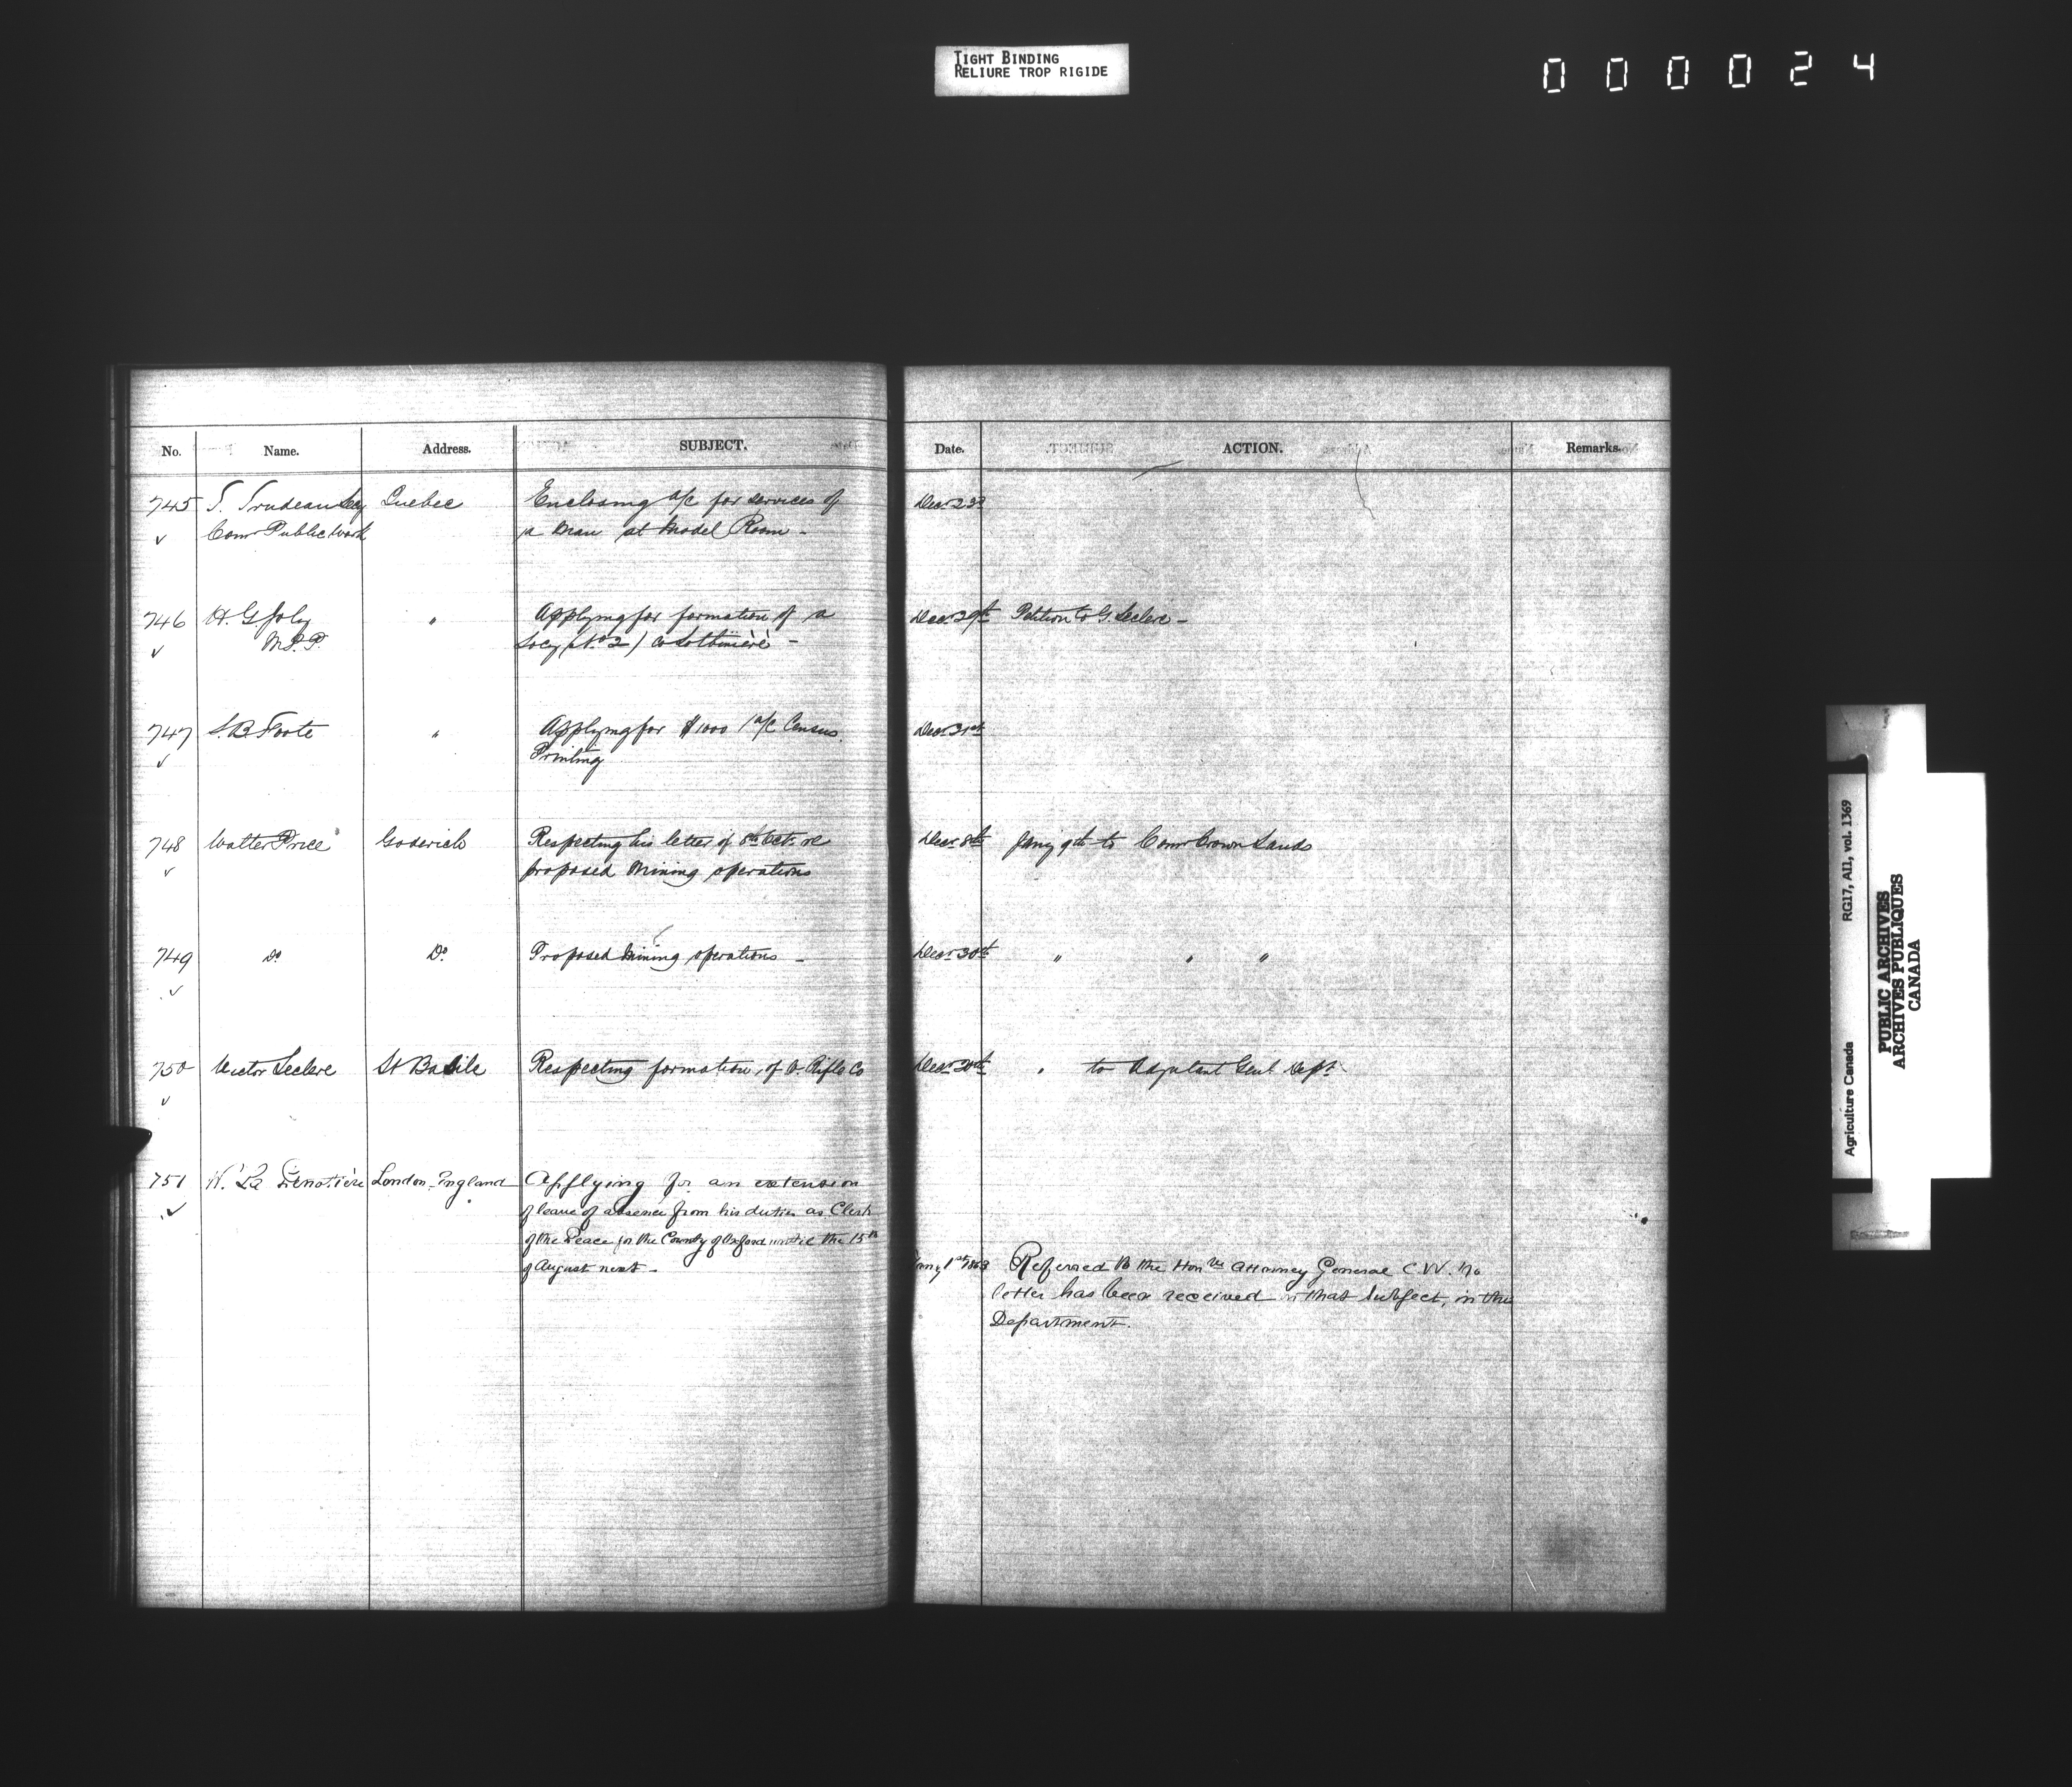 TIGHT BINDING
RELIURE TROP RIGIDE
000024
No. Name. Address. SUBJECT. Date. ACTION. Remarks.
745 T. Trudeau Secy Quebec Enclosing a/c for services of Decr 23d
Comr Public Work a man at Model Room -
746 H. G. Joly " Applying for formation of a Decr 29th Petition to G. Leclere -
M.P.P. Socy (No. 2) Co Lotbinière -
747 S. B. Foote " Applying for $1000 / a/c Census Decr 31st
Printing
748 Walter Price Goderich Respecting his letter of 8th Oct. re Decr 8th Jany 9th to Comr Crown Lands
proposed Mining operations
749 Do Do Proposed Mining operations - Decr 30th " " "
750 Victor Leclere St Basile Respecting formation of V. Rifle Co Decr 30th " to Adjutant Genl Dept.
751 W. La Lenotière London England Applying for an extension
of leave of absence from his duties as Clerk
of the Peace for the County of Oxford until the 15th
of August next - Jany 1st 1863 Referred to the Honble Attorney General C.W. No
letter has been received on that subject, in this
Department.
Agriculture Canada RG17, AII, vol. 1369
PUBLIC ARCHIVES
ARCHIVES PUBLIQUES
CANADA